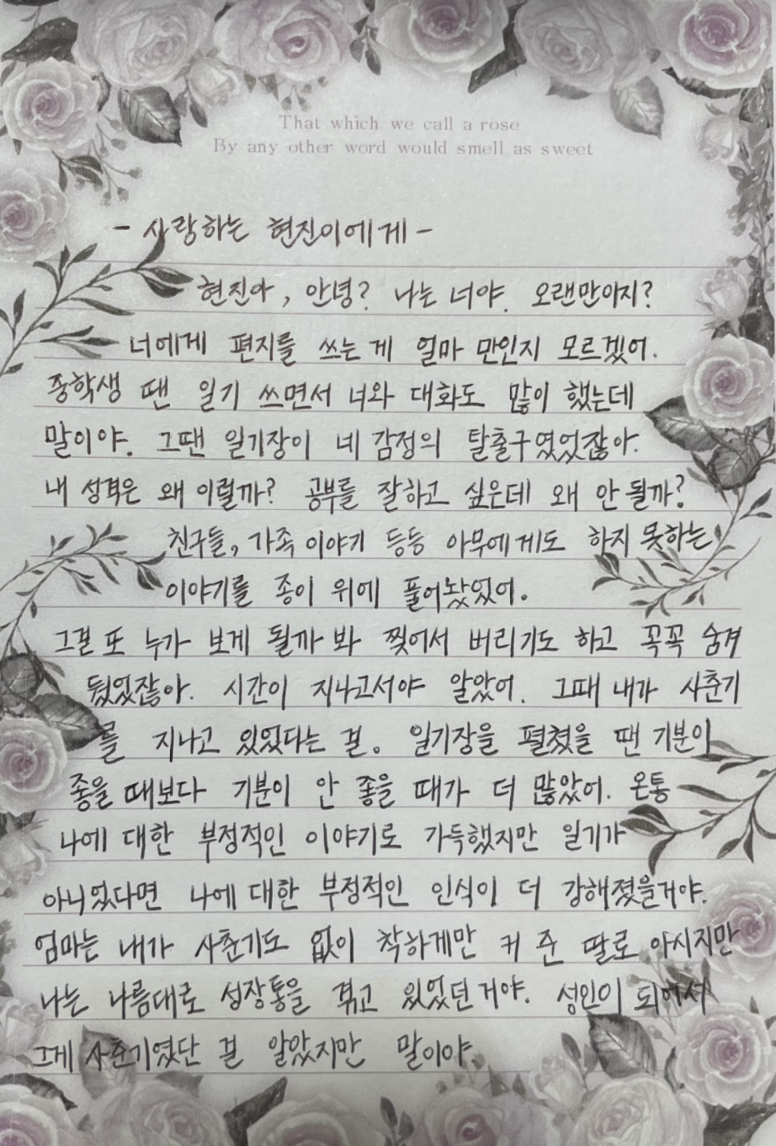 That which we call a rose
By any other word would smell as sweet
- 사랑하는 현진이에게 -
현진아, 안녕? 나는 너야. 오랜만이지?
너에게 편지를 쓰는 게 얼마 만인지 모르겠어.
중학생 땐 일기 쓰면서 너와 대화도 많이 했는데
말이야. 그땐 일기장이 네 감정의 탈출구였었잖아.
내 성격은 왜 이럴까? 공부를 잘하고 싶은데 왜 안 될까?
친구들, 가족 이야기 등등 아무에게도 하지 못하는
이야기를 종이 위에 풀어놨었어.
그걸 또 누가 보게 될까 봐 찢어서 버리기도 하고 꼭꼭 숨겨
뒀었잖아. 시간이 지나고서야 알았어. 그때 내가 사춘기
를 지나고 있었다는 걸. 일기장을 펼쳤을 땐 기분이
좋을 때보다 기분이 안 좋을 때가 더 많았어. 온통
나에 대한 부정적인 이야기로 가득했지만 일기가
아니었다면 나에 대한 부정적인 인식이 더 강해졌을거야.
엄마는 내가 사춘기도 없이 착하게만 커 준 딸로 아시지만
나는 나름대로 성장통을 겪고 있었던거야. 성인이 되어서
그게 사춘기였단 걸 알았지만 말이야.